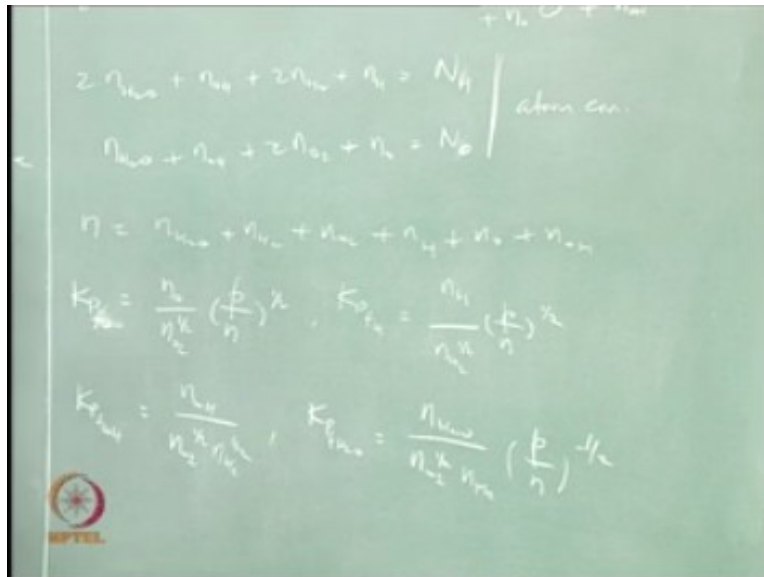 2 n_{H₂O} + n_{OH} + 2n_{H₂} + n_H = N_H
atom con.
n_{H₂O} + n_{OH} + 2n_{O₂} + n_O = N_O
n = n_{H₂O} + n_{H₂} + n_{O₂} + n_H + n_O + n_{OH}
K_{P_{f,O}} = \frac{n_O}{n_{O₂}^{1/2}} (\frac{p}{n})^{1/2}, K_{P_{f,H}} = \frac{n_H}{n_{H₂}^{1/2}} (\frac{p}{n})^{1/2}
K_{P_{f,OH}} = \frac{n_{OH}}{n_{O₂}^{1/2} n_{H₂}^{1/2}}, K_{P_{f,H₂O}} = \frac{n_{H₂O}}{n_{O₂}^{1/2} n_{H₂}} (\frac{p}{n})^{-1/2}
NPTEL